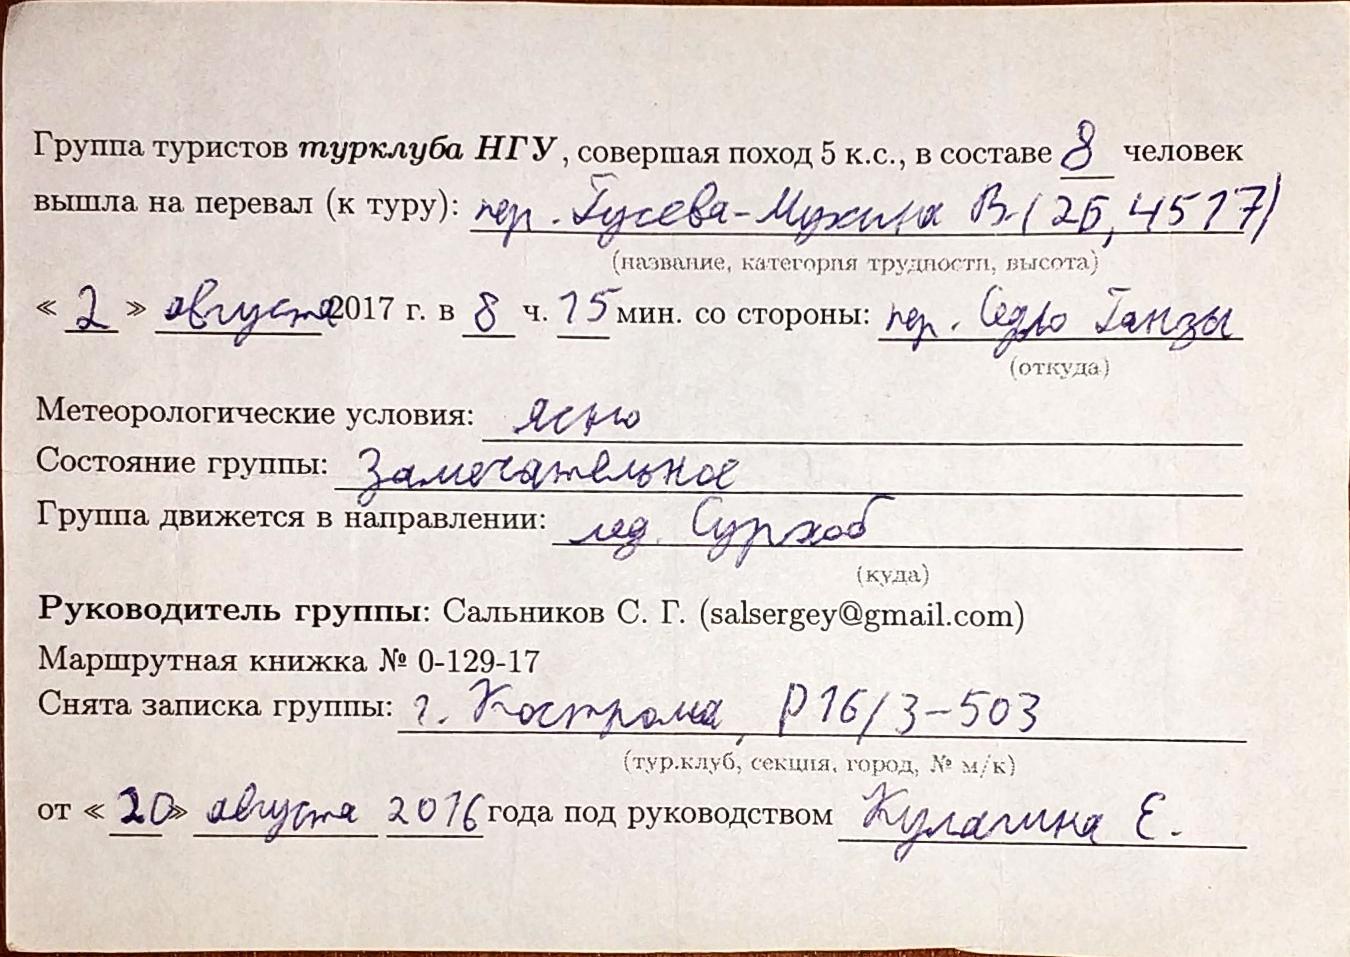 Группа туристов турклуба НГУ, совершая поход 5 к.с., в составе 8 человек
вышла на перевал (к туру): пер. Гусева-Мухина В. (2Б, 4517)
(название, категория трудности, высота)
« 2 » августа 2017 г. в 8 ч. 15 мин. со стороны: пер. Седло Ганзы
(откуда)
Метеорологические условия: ясно
Состояние группы: Замечательное
Группа движется в направлении: лед. Сурхоб
(куда)
Руководитель группы: Сальников С. Г. (salsergey@gmail.com)
Маршрутная книжка № 0-129-17
Снята записка группы: г. Кострома, Р16/3-503
(тур.клуб, секция, город, № м/к)
от « 20 » августа 2016 года под руководством Кулагина Е.